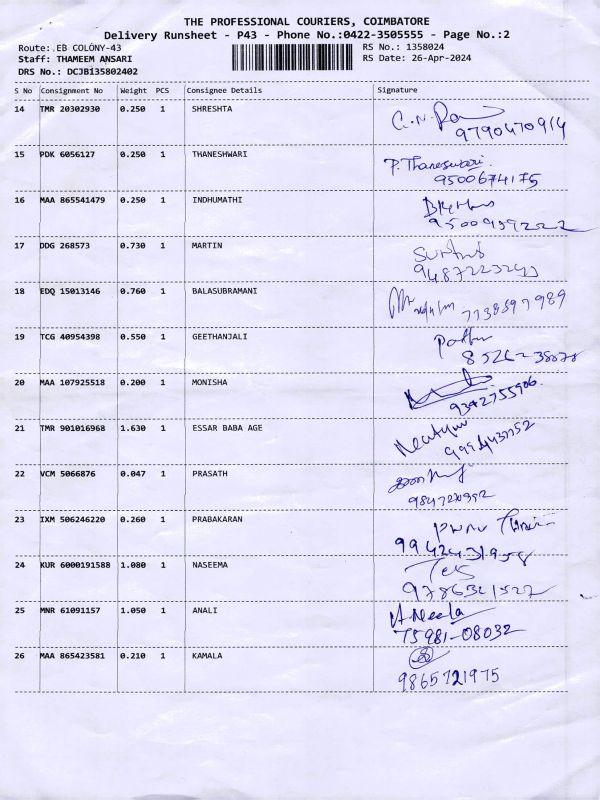 THE PROFESSIONAL COURIERS, COIMBATORE
Delivery Runsheet - P43 - Phone No.:0422-3505555 - Page No.:2
Route: EB COLONY-43
RS No.: 1358024
Staff: THAMEEM ANSARI
RS Date: 26-Apr-2024
DRS No.: DCJB135802402
S No Consignment No Weight PCS Consignee Details Signature
14 TMR 20302930 0.250 1 SHRESHTA
9790470914
15 PDK 6056127 0.250 1 THANESHWARI P. Thaneswari.
9500674175
16 MAA 865541479 0.250 1 INDHUMATHI
17 DDG 268573 0.730 1 MARTIN
18 EDQ 15013146 0.760 1 BALASUBRAMANI
19 TCG 40954398 0.550 1 GEETHANJALI
20 MAA 107925518 0.200 1 MONISHA
9342755906
21 TMR 901016968 1.630 1 ESSAR BABA AGE
22 VCM 5066876 0.047 1 PRASATH
23 IXM 506246220 0.260 1 PRABAKARAN
9942431958
24 KUR 6000191588 1.080 1 NASEEMA
9786321527
25 MNR 61091157 1.050 1 ANALI A Neela
75981-08032
26 MAA 865423581 0.210 1 KAMALA
9865721975